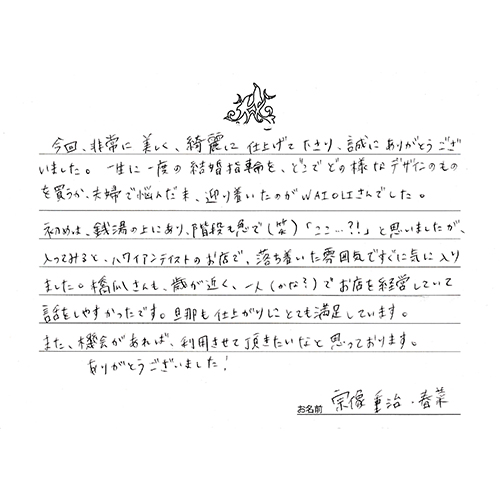 今回、非常に美しく、綺麗に仕上げて下さり、誠にありがとうござ
いました。一生に一度の結婚指輪を、どこでどの様なデザインのもの
を買うか、夫婦で悩んだ末、迎り着いたのがWAIOLIさんでした。
初めは、銭湯の上にあり、階段も急で(笑)「ここ…?!」と思いましたが、
入ってみると、ハワイアンテイストのお店で、落ち着いた雰囲気ですぐに気に入り
ました。橋爪さんも、歳が近く、一人(かな?)でお店を経営していて
話をしやすかったです。旦那も仕上がりにとても満足しています。
また、機会があれば、利用させて頂きたいなと思っております。
ありがとうございました!
お名前 宗像 重治・春菜